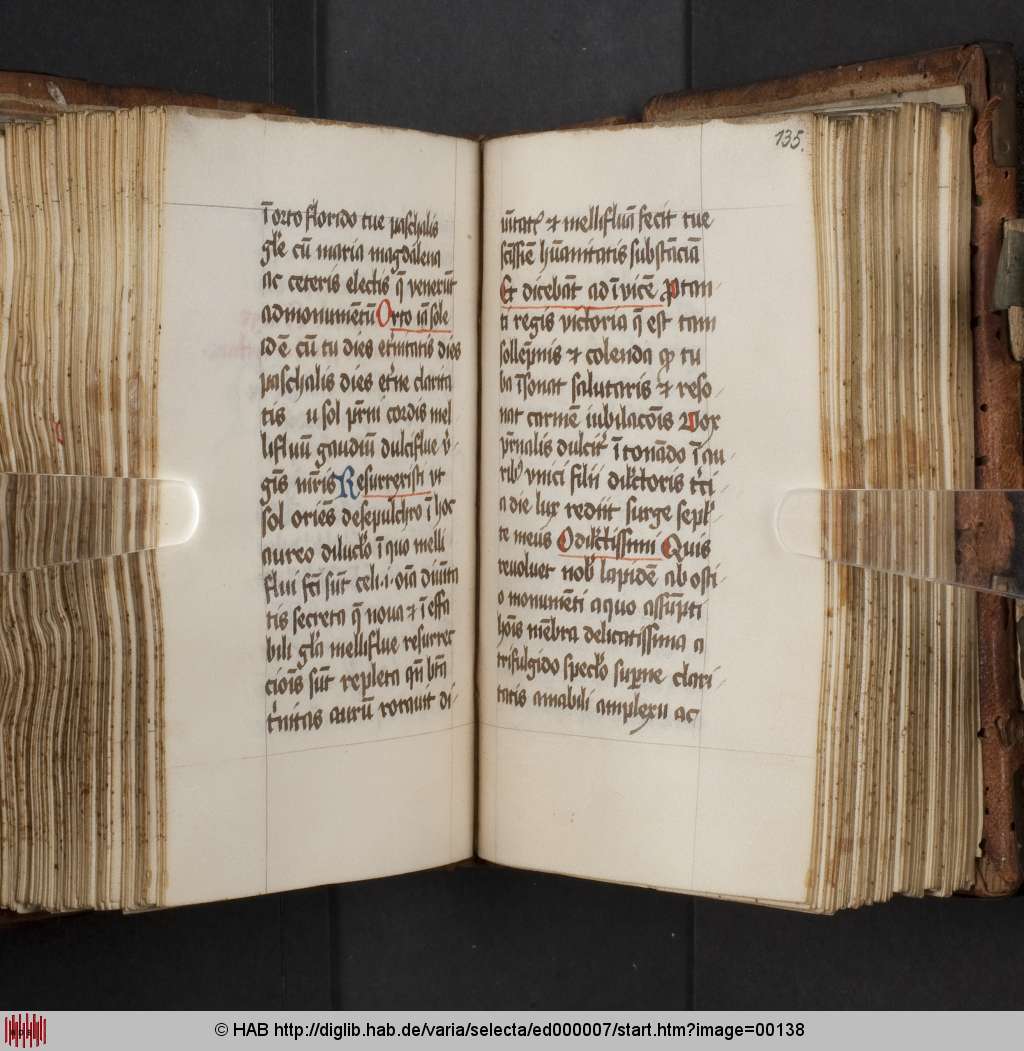 ī orto florido tue paschalis
gl̄e cū maria magdalena
ac ceteris electis q̄ venerūt
ad monumētū Orto iā sole
id ē cū tu dies et̄nitatis dies
paschalis dies et̄ne clarita
tis u sol p̄rni cordis mel
lifluū gaudiū dulciflue v̄
gīs nr̄is Resurrexisti vt
sol oriēs de sepulchro ī hoc
aureo diluc̄lo ī quo melli
flui fc̄i sūt celi .i. oīa diuīta
tis secreta q̄ noua et ī effa
bili gl̄a melliflue resurrec
cioīs sūt repleta qn̄ bt̄a
t̄rnitas aurū rorauit di-
135.
uītat̄ et mellifluā fecit tue
scissīe hūanitatis substācīā
Et dicebāt ad īvicē Ptan
ti regis victoria q̄ est tam
sollēpnis et colenda ꝙ tu
ba īsonat salutaris et reso
nat carmē iubilacōīs Vox
p̄rnalis dulcit̄ ītonādo ī au-
rib9 vnici filii dil̄ctoris t̄rci-
a die lux rediit surge sepl̄-
te meus O dil̄ctissimi Quis
reuoluet nob̄ lapidē ab osti-
o monumēti a quo assūpti
hoīs mēbra delicatissima a
trifulgido spec̄lo sup̄ne clari-
tatis amabili amplexu ac
© HAB http://diglib.hab.de/varia/selecta/ed000007/start.htm?image=00138